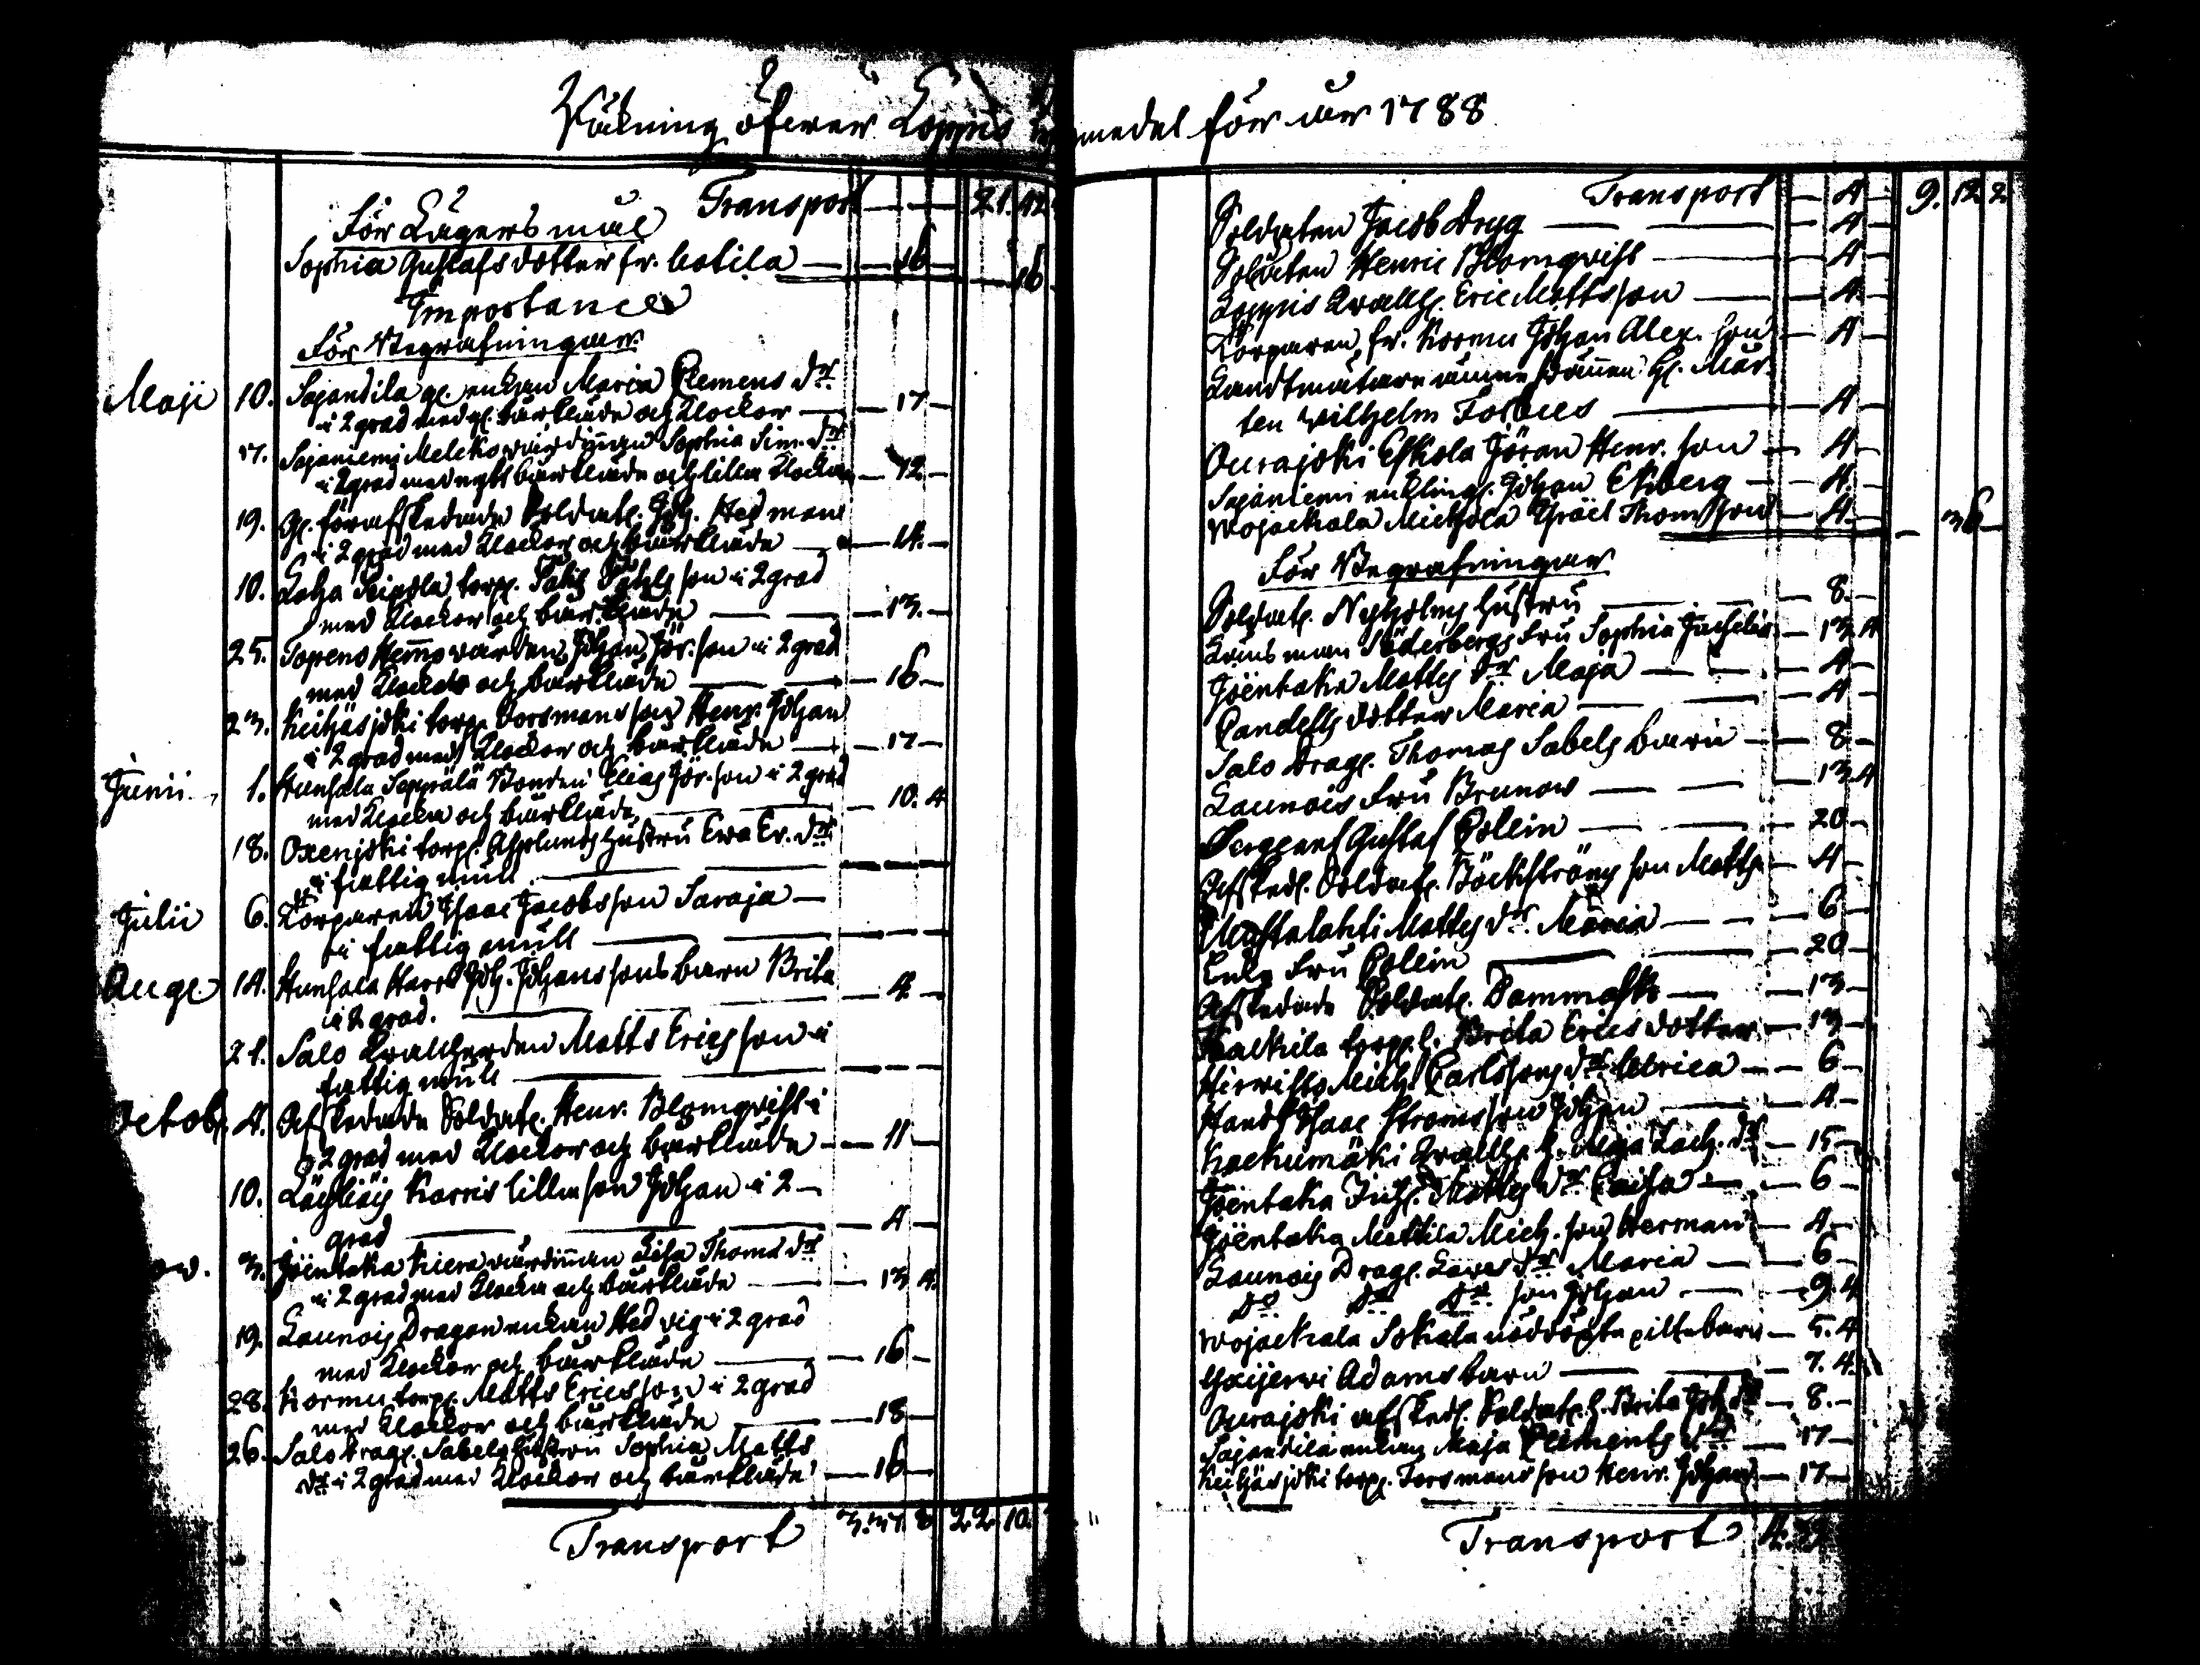 Räkning öfwer Loppis
medel för år 1788
Transport — — 21. 12
För Lägersmål
Sophia Gustafs dotter fr. Cotila — — 16 —
— 16
Importance
För Begrafningar
Maji 10. Sajandila gl. enkan Maria Clemens dr
i 2 grad med gl. bårkläde och klockor — — 17 —
Sajaniemi Melcko wärdinnan Sophia Sim. dr
i 2 grad med nytt bårkläde och lilla klockan — 12 —
19. Gl. förafskedade Soldat. Joh. Hedman
i 2 grad med klockor och bårkläde — — 14. —
10. Loha torp. i 2 grad
med klockor och bårkläde — — — 13. —
25. Topeno Hemmo wärden Johan Jör. son i 2 grad
med klockor och bårkläde — — — 16 —
23. Keihäsjoki torp. Forsmans son Henr. Johan
i 2 grad med klockor och bårkläde — — 17 —
Junii 1. Hunsala Seppälä Bonden Elias Jör. son i 2 grad
med klocka och bårkläde — — — 10. 4
18. Oxenjoki torp. Asplunds hustru Ewa Er. dr
i fattig mull — — —
Julii 6. Torparen Isaac Jacobsson Saraja —
i fattig mull — — —
Aug. 14. Hunsala Harri Joh. Johanssons barn Brita
i 2 grad. — — — 4 —
21. Salo Qwallherden Matts Ericsson i
fattig mull — — —
Octob. 4. Afskedade Soldat. Henr. Blomqvist i
2 grad med klockor och bårkläde — — 11 —
10. Läyliäis Korris lilla son Johan i 2 —
grad — — — 4 —
3. Jöentaka Kiera wärdinnan Lisa Thoms dr
i 2 grad med klocka och bårkläde — — 13 4.
19. Launois Dragon enkan Hedvig i 2 grad
med klockor och bårkläde — — 16 —
28. Kormu torp. Matts Ericsson i 2 grad
med klockor och bårkläde — — 18 —
26. Salo Drag. Sabels hustru Sophia Matts
dr i 2 grad med klockor och bårkläde — 16 —
Transport 3. 37. 8 22 10.
Transport — 4 — 9. 12 2
Soldaten Jacob Dryg — — 4 —
Soldaten Henric Blomqvist — — 4 —
Loppis Qwallh. Eric Mattsson — — 4 —
Torparen fr. Kormu Johan Alex. son — 4 —
Landtmätare Hl. Mår-
ten Wilhelm — — 4 —
Ourajoki Eskola Jöran Henr. son — 4 —
Sajaniemi enkling. Johan Ekberg — 4. —
Wojackala Mickola Thomsson — 4 — — 36 —
För Begrafningar
Soldat. Nyholms hustru — — 8. —
Länsman Söderbergs Fru Sophia — 13 4
Jöentaka Matts dr Maja — — 4 —
dotter Maria — — 4 —
Salo Drag. Thomas Sabels barn — 8 —
Launois Fru Brunow — — 13 4
Sergeant Gustaf Pollein — — 20 —
Afsked. Soldat. Böckströms son Matts — 4 —
Mustalahti Matts dr. Maria — — 6 —
Fru Pollein — — 20 —
Afskedade Soldat. Dammask — — 13 —
torp. h. Brita Erics dotter — 13 —
Hirwisto Mich. Carlssons dr Ulrica — 6 —
Isaac son Johan — 4 —
Kockumäki Qwallh. h. Maja Zach. dr — 15 —
Jöentaka Inh. Matts dr Caisa — 6 —
Jöentaka Mattila Mich. son Herman — 4 —
Launois Drag. dr Maria — — 6 —
Do Do Do son Johan — — 9. 4
Wojackala Sokala nöddöpta piltebarn — 5. 4
Yxijerwi Adams barn — — 7. 4.
Ourajoki afsked. Soldat. h. Brita Joh. dr — 8. —
Sajandila enkan Maja Clements dr — 17 —
Keihäsjoki torp. Forsmans son Henr. Johan — 17 —
Transport